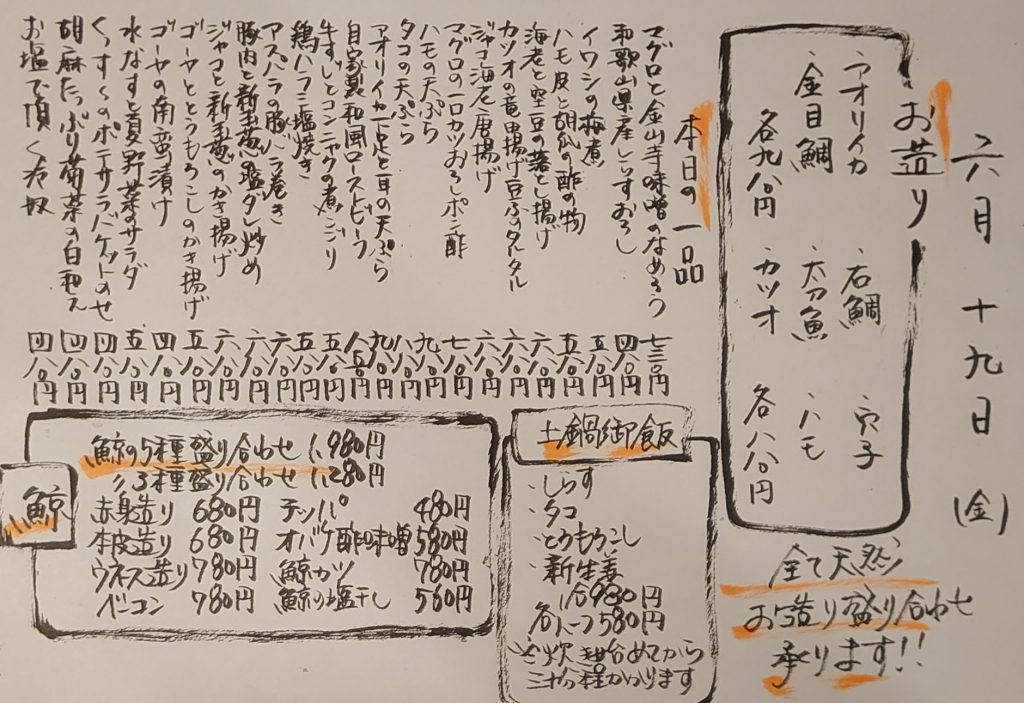 六月十九日(金)
お造り
・アオリイカ ・石鯛 ・穴子
・金目鯛 ・太刀魚 ・ハモ
各九八〇円 ・カツオ 各八八〇円
全て天然
お造り盛り合わせ
承ります!!
本日の一品
マグロと金山寺味噌のなめろう 七三〇円
和歌山県産しらすおろし 四八〇円
イワシの梅煮 五八〇円
ハモ皮と胡瓜の酢の物 五八〇円
海老と空豆の葛と揚げ 六八〇円
カツオの竜田揚げ豆ふのタルタル 六八〇円
ジャコ海老唐揚げ 六八〇円
マグロの一口カツおろしポン酢 七八〇円
ハモの天ぷら 九八〇円
タコの天ぷら 八八〇円
アオリイカ下足と耳の天ぷら 九八〇円
自家製和風ローストビーフ 八五〇円
牛すじとコンニャクの煮こごり 五八〇円
鶏ハラミ塩焼き 五八〇円
アスパラの豚バラ巻き 六八〇円
豚肉と新玉葱の塩ダレ炒め 六八〇円
ジャコと新玉葱のかき揚げ 六八〇円
ゴーヤととうもろこしのかき揚げ 五八〇円
ゴーヤの南蛮漬け 四八〇円
水なすと夏野菜のサラダ 五八〇円
くっすくのポテサラバケットのせ 四八〇円
胡麻たっぷり菊菜の白和え 四八〇円
お塩で頂く冷奴 四八〇円
土鍋御飯
・しらす
・タコ
・とうもろこし
・新生姜
一合980円
各ハーフ580円
※炊き始めてから
三十分程かかります
鯨
鯨の5種盛り合わせ 1,980円
〃3種盛り合わせ 1,280円
赤身造り 680円 テッパ 480円
本皮造り 680円 オバケ酢味噌 580円
ウネス造り 780円 鯨カツ 780円
ベーコン 780円 鯨の塩干し 560円